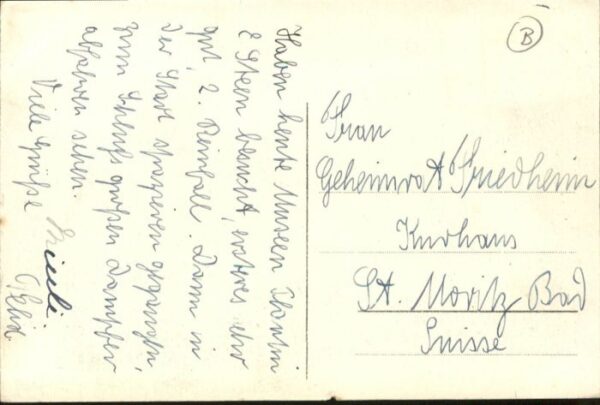 Haben heute Museen Plantin
& Steen besucht, ersteres sehr
gut, 2. Reinfall. Dann in
der Stadt spazieren gegangen,
zum Schluß großen Dampfer
abfahren sehen.
Viele Grüße
B
Frau
Geheimrat Friedheim
Kurhaus
St. Moritz Bad
Suisse